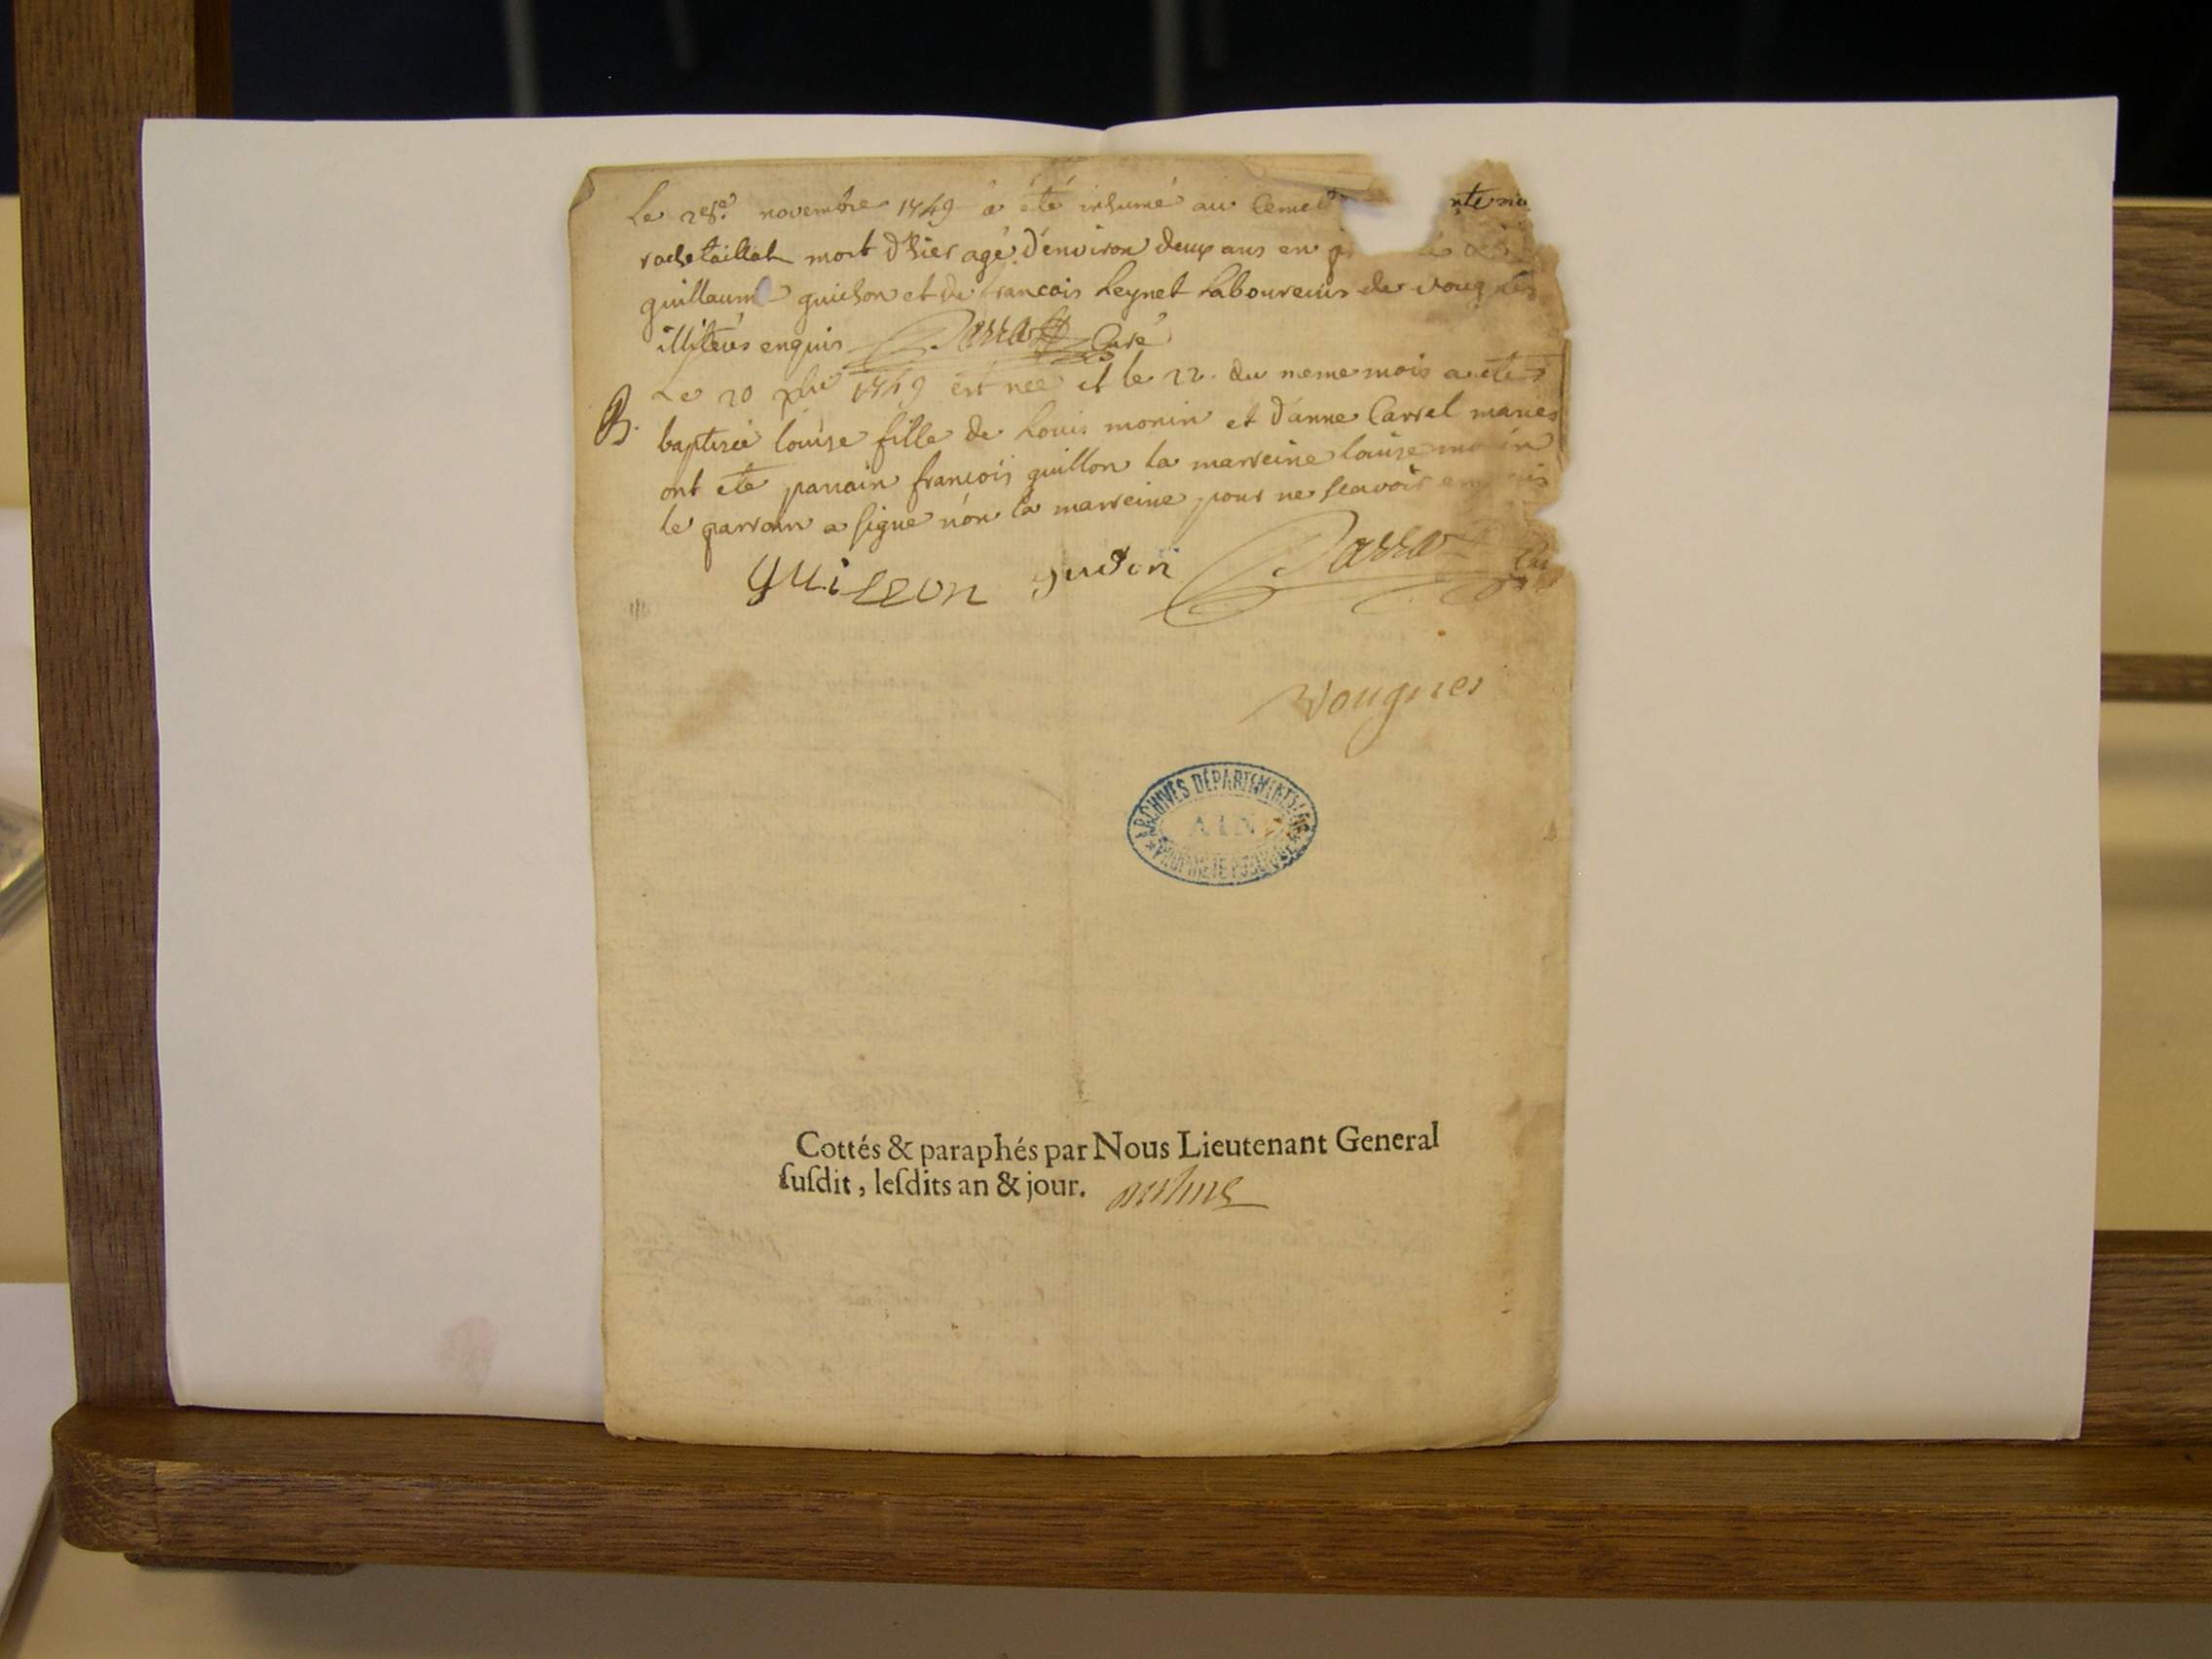 Le novembre 1749 a été inhumé au
rachetaillat mort d'hier agé d'environ deux ans en
guillaume guichon et de francois Leynet Laboureurs de vougnes
illiterés enquis Curé
Le 20 9bre 1749 est née et le 22. du meme mois a ete
B. baptisée louise fille de Louis monin et d'anne Carrel maries
ont ete parrain françois guillon la marreine louise monin
le parrain a signé non la marreine pour ne scavoir enquis
guillon
Vougnes
ARCHIVES DÉPARTEMENTALES
AIN
PROPRIETE PUBLIQUE
Cottés & paraphés par Nous Lieutenant General
susdit, lesdits an & jour.